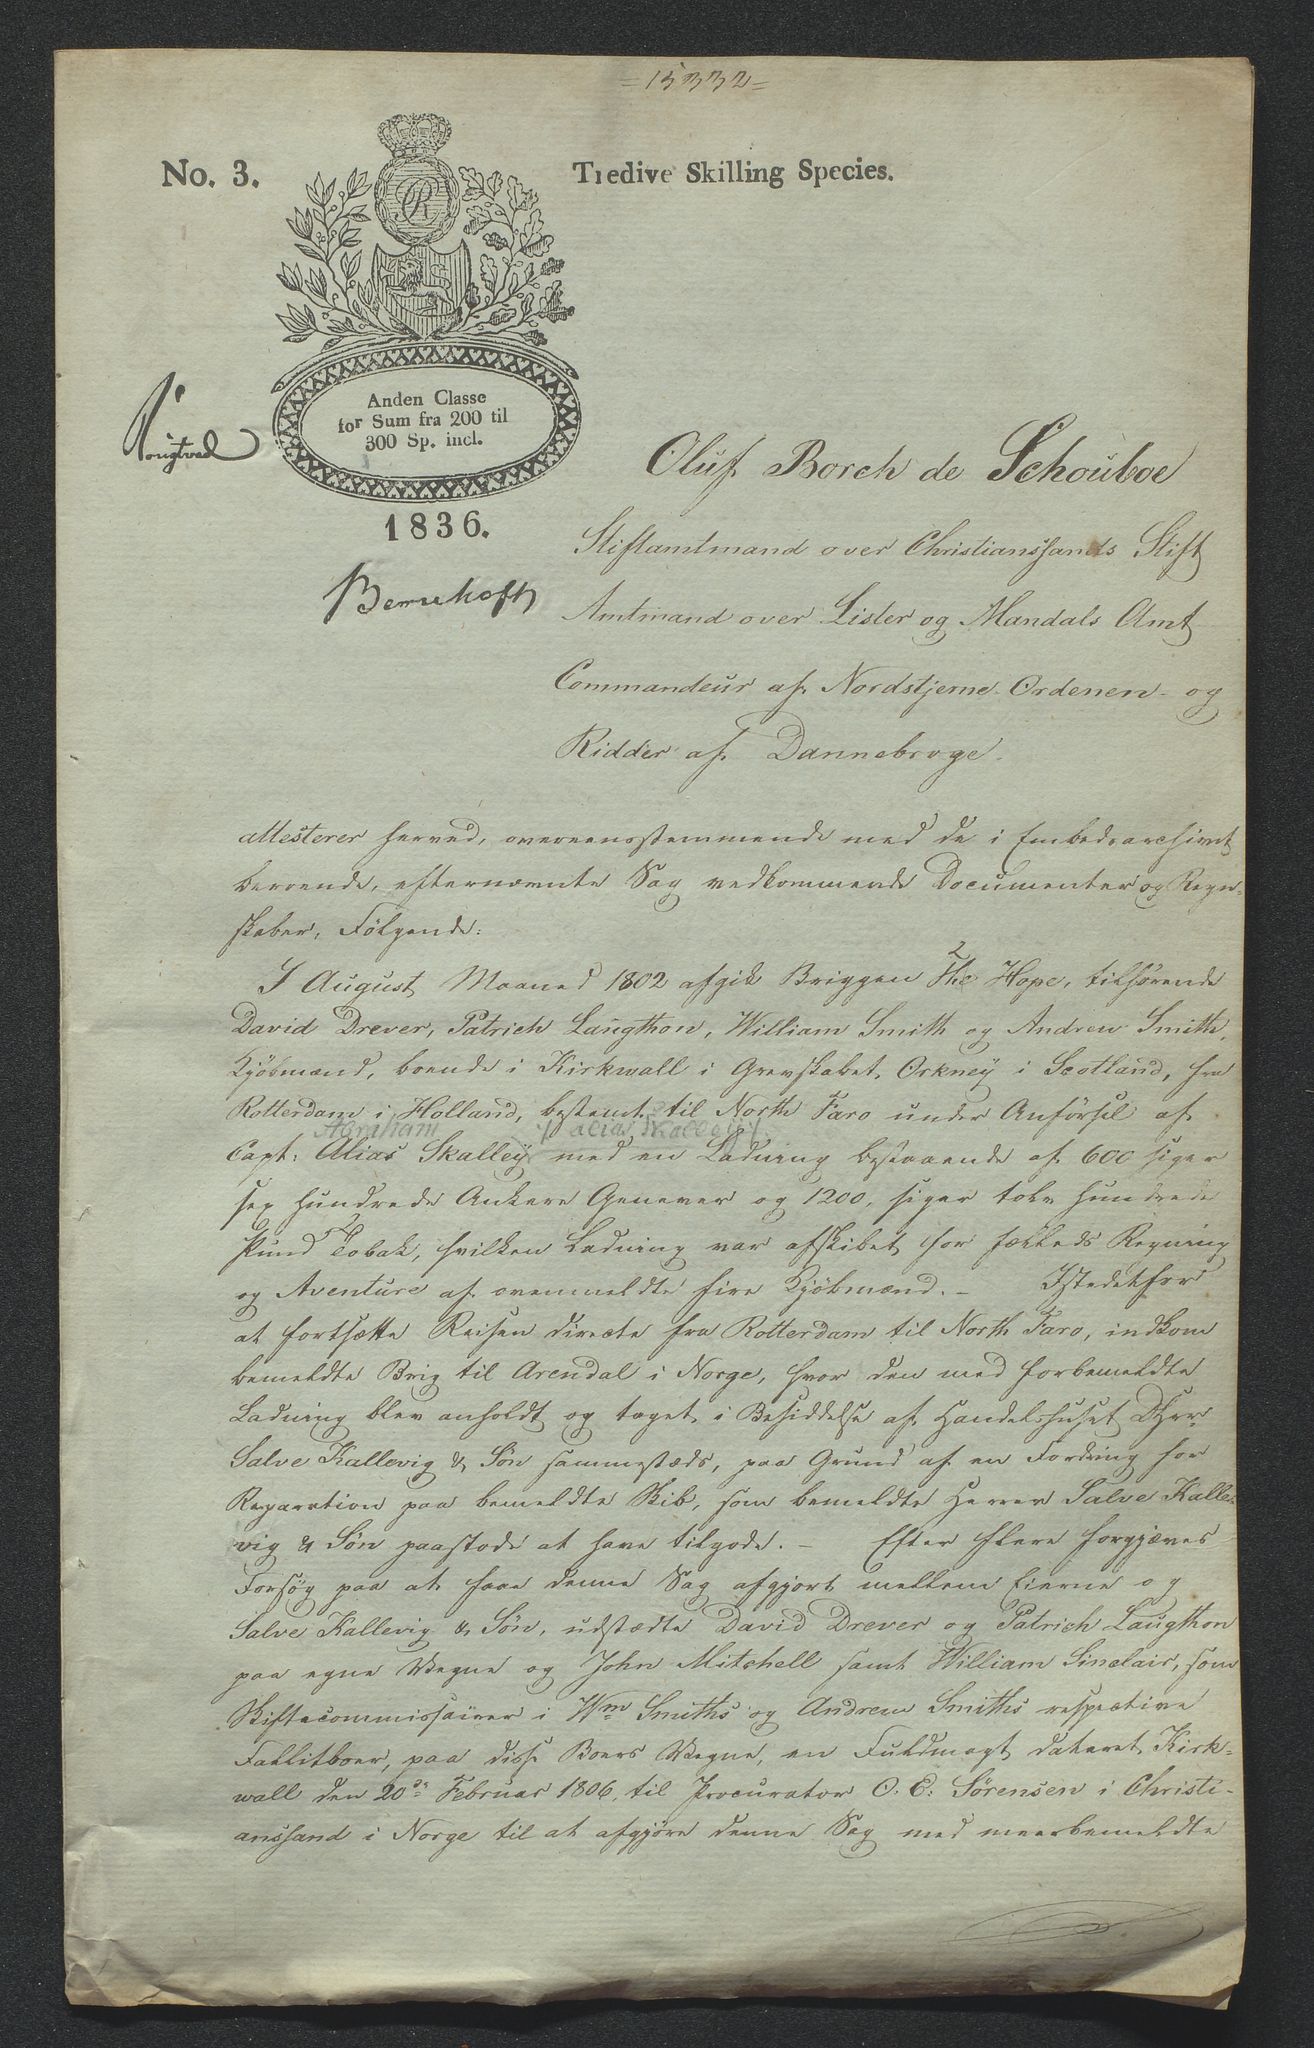 =15332=
No. 3.
Tredive Skilling Species.
R
Anden Classe
for Sum fra 200 til
300 Sp. incl.
1836.
Oluf Borch de Schouboe
Stiftamtmand over Christianssands Stift
Amtmand over Lister og Mandals Amt
Commandeur af Nordstjerne-Ordenen og
Ridder af Dannebroge.
attesterer herved, overeensstemmende med de i Embedsarchivet
beroende, efternævnte Sag vedkommende Documenter og Regn-
skaber, Følgende:
I August Maaned 1802 afgik Briggen The Hope, tilhørende
David Drever, Patrich Laugthon, William Smith og Andrew Smith,
Kjøbmænd, boende i Kirkwall i Grevskabet Orkney i Scotland, fra
Rotterdam i Holland, bestemt til North Faro under Anførsel af
Abraham alias Skalley
Capt. Alias Skalley med en Ladning bestaaende af 600 siger
sex hundrede Ankere Genever og 1200, siger tolv hundrede
Pund Tobak, hvilken Ladning var afskibet for fælleds Regning
og Aventure af ovenmeldte fire Kjøbmænd. – Istedetfor
at fortsætte Reisen directe fra Rotterdam til North Faro, indkom
bemeldte Brig til Arendal i Norge, hvor den med forbemeldte
Ladning blev anholdt og taget i Besiddelse af Handelshuset DHrr
Salve Kallevig & Søn sammesteds, paa Grund af en Fordring for
Reparation paa bemeldte Skib, som bemeldte Herrer Salve Kalle-
vig & Søn paastode at have tilgode. – Efter flere forgjæves
Forsøg paa at faae denne Sag afgjort mellem Eierne og
Salve Kallevig & Søn, udstædte David Drever og Patrich Laugthon
paa egne Vegne og John Mitchell samt William Sinclair, som
Skiftecommissairer i Wm Smiths og Andrew Smiths respective
Fallitboer, paa disse Boers Vegne, en Fuldmagt dateret Kirk-
wall den 20de Februar 1806, til Procurator O. E. Sørensen i Christi-
anssand i Norge til at afgjøre denne Sag med meerbemeldte